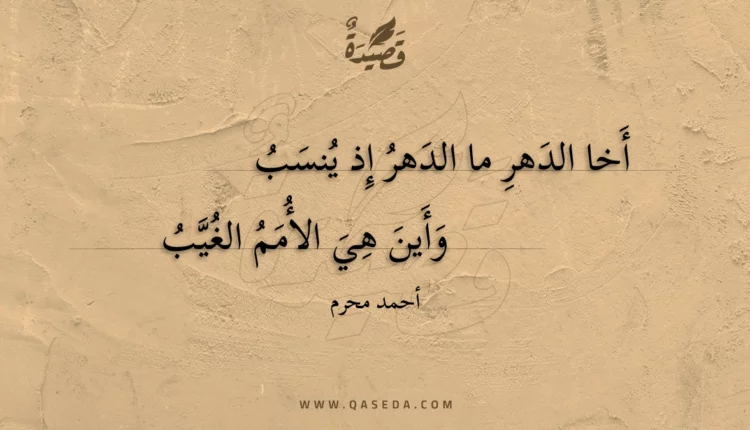 قَصِيْدَةٌ
أَخا الدَهرِ ما الدَهرُ إِذ يُنسَبُ
وَأَينَ هِيَ الأُمَمُ الغُيَّبُ
أحمد محرم
WWW.QASEDA.COM